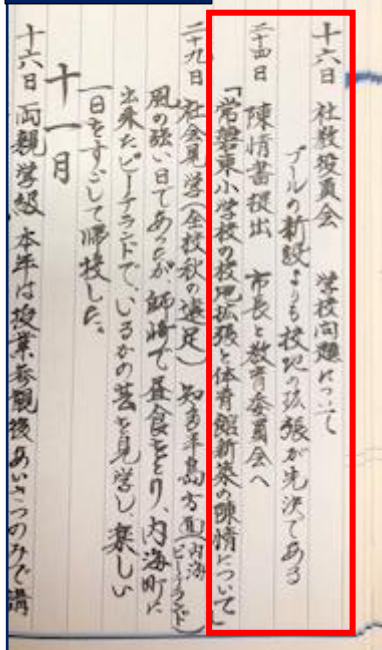 十六日 社教役員会 学校問題について
プールの新設よりも校地の拡張が先決である
二十四日 陳情書提出 市長と教育委員会へ
「常磐東小学校の校地拡張と体育館新築の陳情について」
二十九日 社会見学(全校秋の遠足) 知多半島方面(内海ビーチランド)
風の強い日であったが 師崎で昼食をとり、内海町に
出来たビーチランドで、いるかの芸を見学し、楽しい
一日をすごして帰校した。
十一月
十六日 両親学級 本年は授業参観後あいさつのみで講